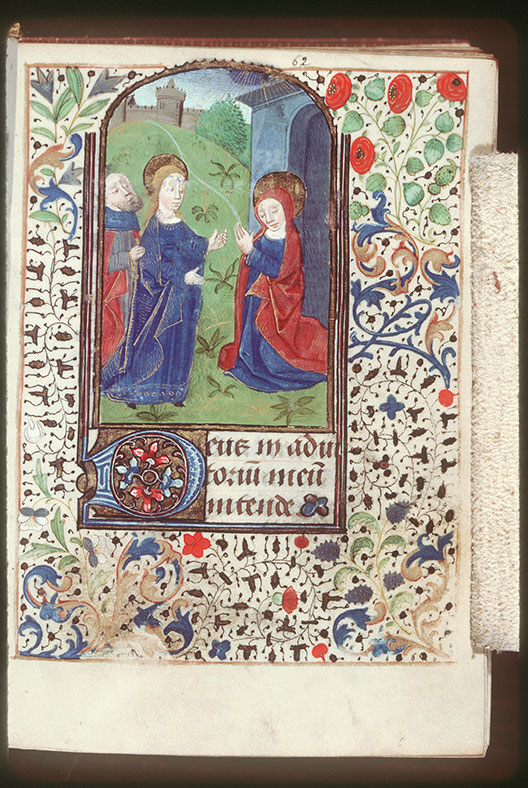 62
Deus in adiu
toriū meū
intende